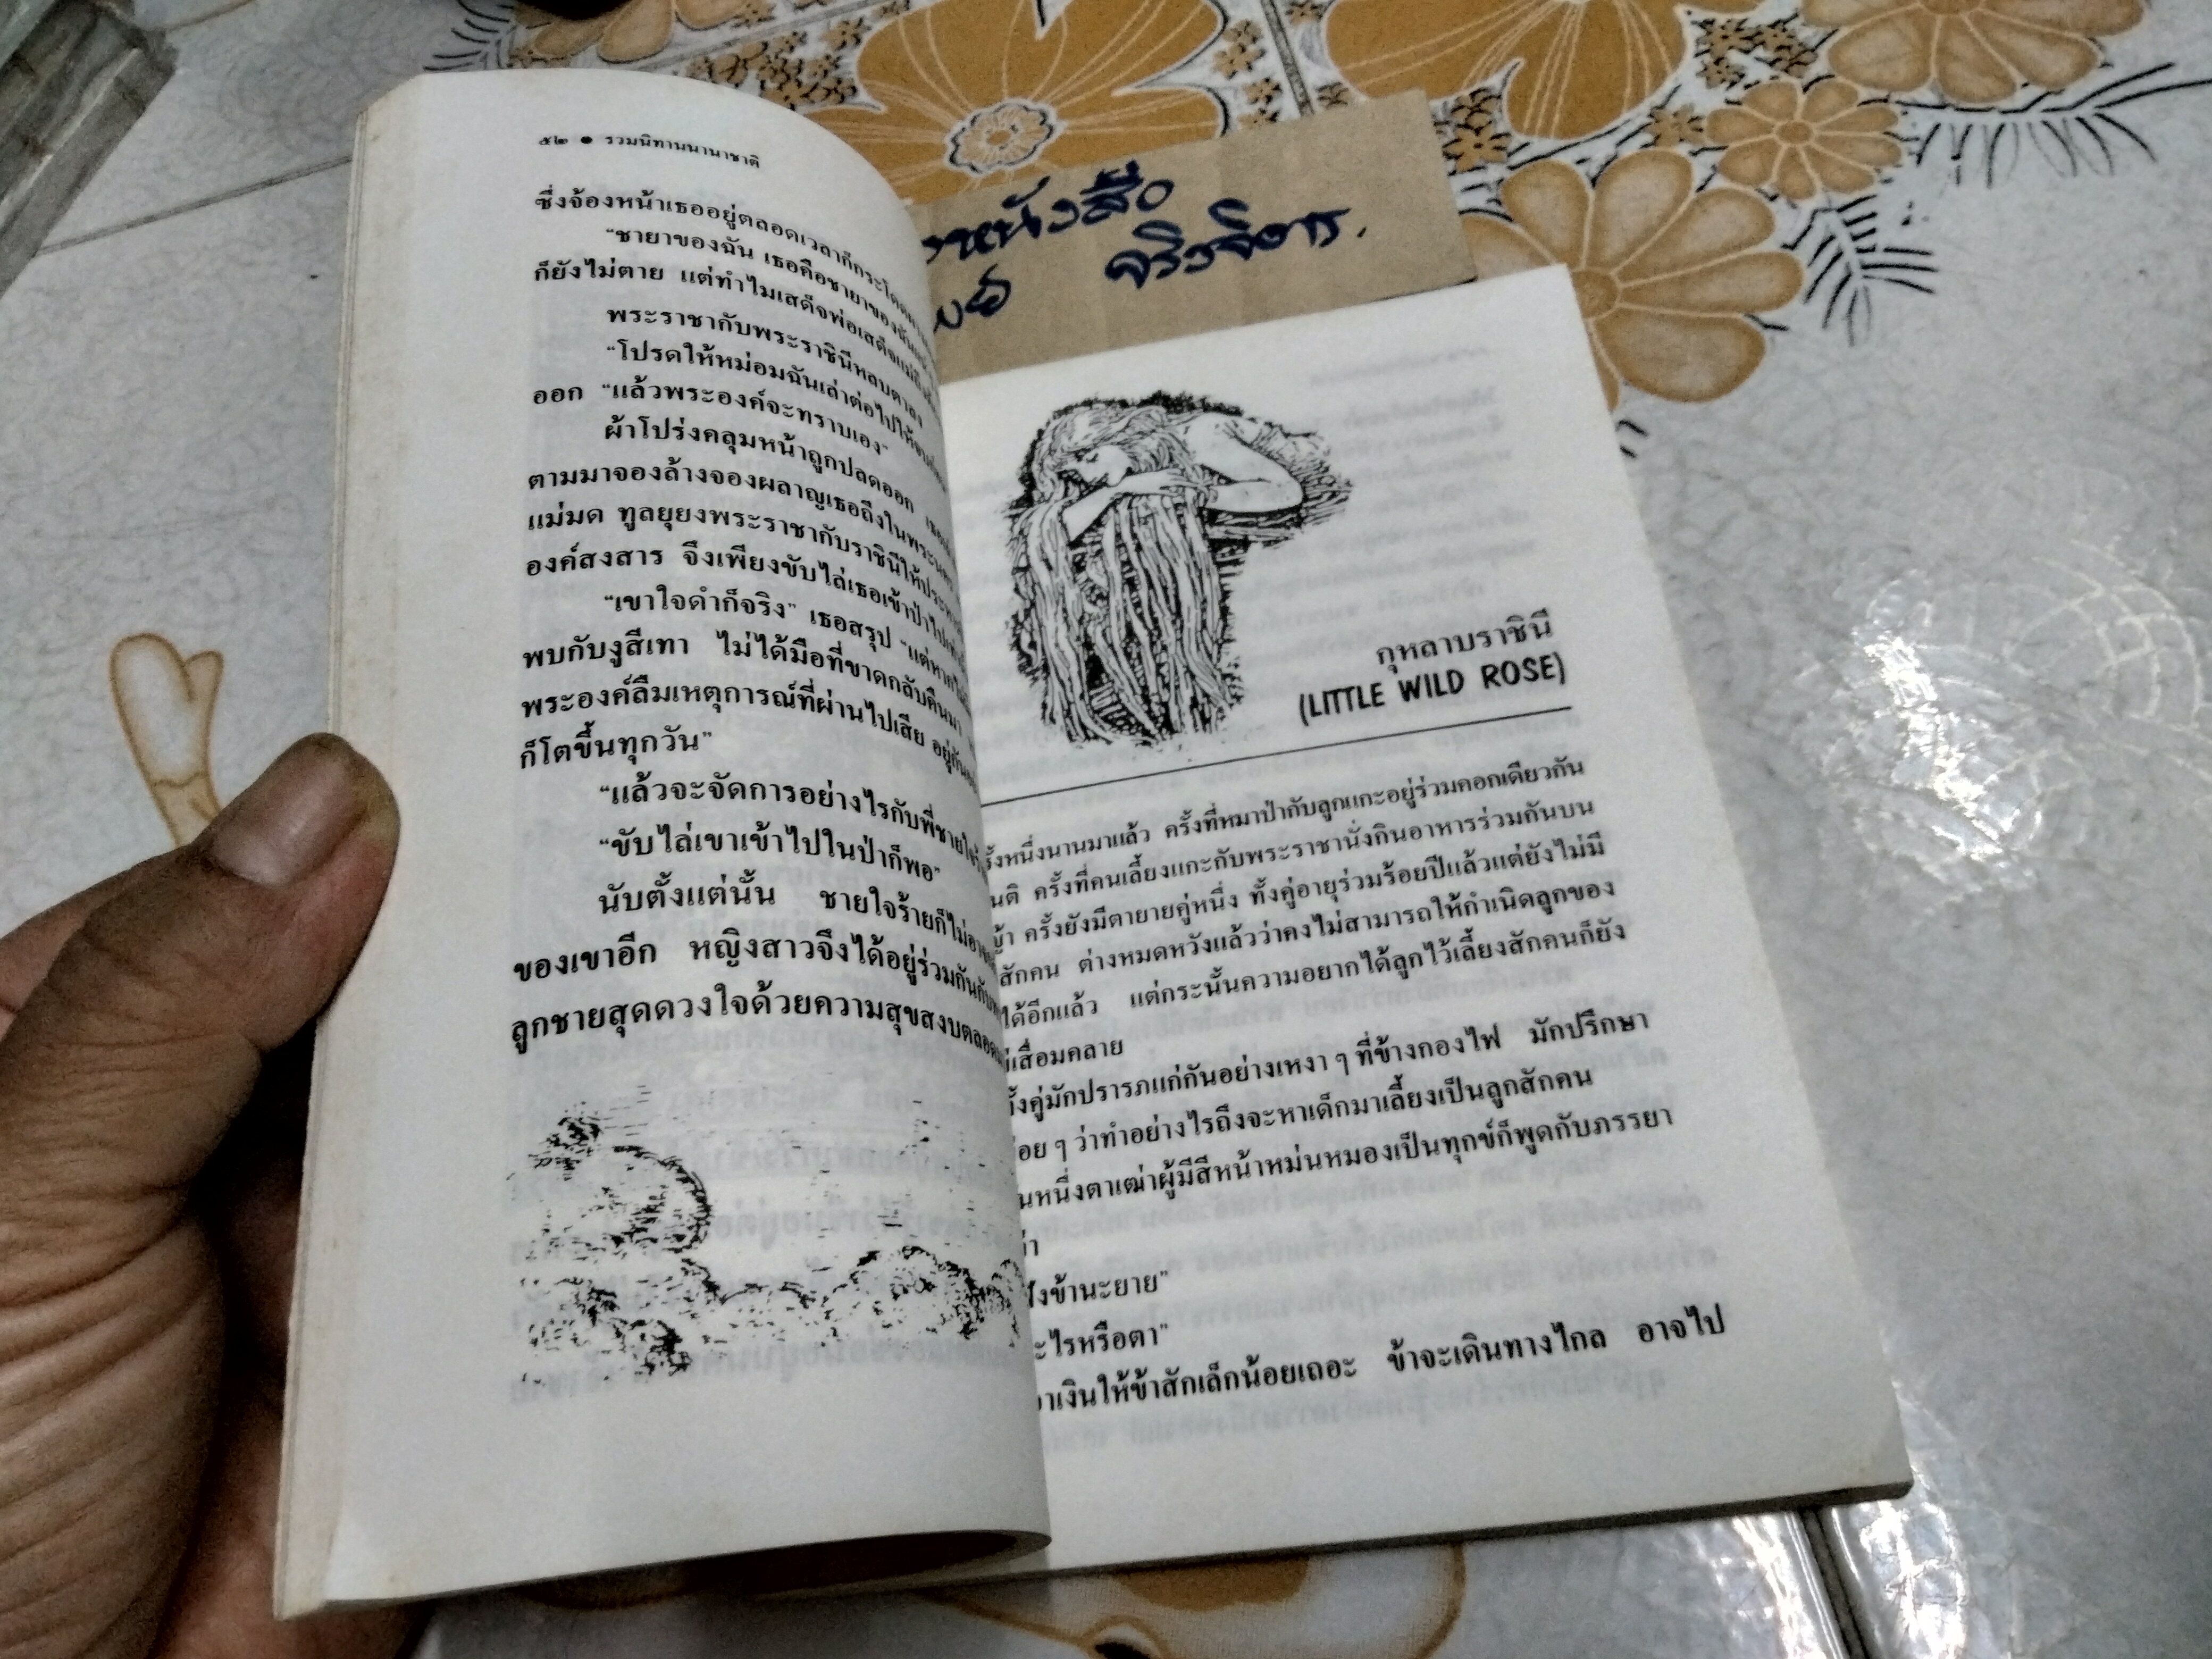 ๕๒ ● รวมนิทานนานาชาติ
ซึ่งจ้องหน้าเธออยู่ตลอดเวลาก็กระโดด
“ชายาของฉัน เธอคือชายาของฉัน
ก็ยังไม่ตาย แต่ทำไมเสด็จพ่อเสด็จแม่
พระราชากับพระราชินีหลบตาลง
“โปรดให้หม่อมฉันเล่าต่อไปให้
ออก “แล้วพระองค์จะทราบเอง”
ผ้าโปร่งคลุมหน้าถูกปลดออก
ตามมาจองล้างจองผลาญเธอถึงใน
แม่มด ทูลยุยงพระราชากับราชินีให้
องค์สงสาร จึงเพียงขับไล่เธอเข้าป่าไป
“เขาใจดำก็จริง” เธอสรุป “แต่หาก
พบกับงูสีเทา ไม่ได้มือที่ขาดกลับคืนมา
พระองค์ลืมเหตุการณ์ที่ผ่านไปเสีย อยู่กัน
ก็โตขึ้นทุกวัน”
“แล้วจะจัดการอย่างไรกับพี่ชาย
“ขับไล่เขาเข้าไปในป่าก็พอ”
นับตั้งแต่นั้น ชายใจร้ายก็ไม่
ของเขาอีก หญิงสาวจึงได้อยู่ร่วมกันกับ
ลูกชายสุดดวงใจด้วยความสุขสงบตลอด
หนังสือ
จริงจิตร.
กุหลาบราชินี
(LITTLE WILD ROSE)
หนึ่งนานมาแล้ว ครั้งที่หมาป่ากับลูกแกะอยู่ร่วมคอกเดียวกัน
ครั้งที่คนเลี้ยงแกะกับพระราชานั่งกินอาหารร่วมกันบน
ครั้งยังมีตายายคู่หนึ่ง ทั้งคู่อายุร่วมร้อยปีแล้วแต่ยังไม่มี
สักคน ต่างหมดหวังแล้วว่าคงไม่สามารถให้กำเนิดลูกของ
ได้อีกแล้ว แต่กระนั้นความอยากได้ลูกไว้เลี้ยงสักคนก็ยัง
เสื่อมคลาย
ทั้งคู่มักปรารภแก่กันอย่างเหงา ๆ ที่ข้างกองไฟ มักปรึกษา
ๆ ว่าทำอย่างไรถึงจะหาเด็กมาเลี้ยงเป็นลูกสักคน
หนึ่งตาเฒ่าผู้มีสีหน้าหม่นหมองเป็นทุกข์ก็พูดกับภรรยา
ข้านะยาย”
หรือตา”
เงินให้ข้าสักเล็กน้อยเถอะ ข้าจะเดินทางไกล อาจไป